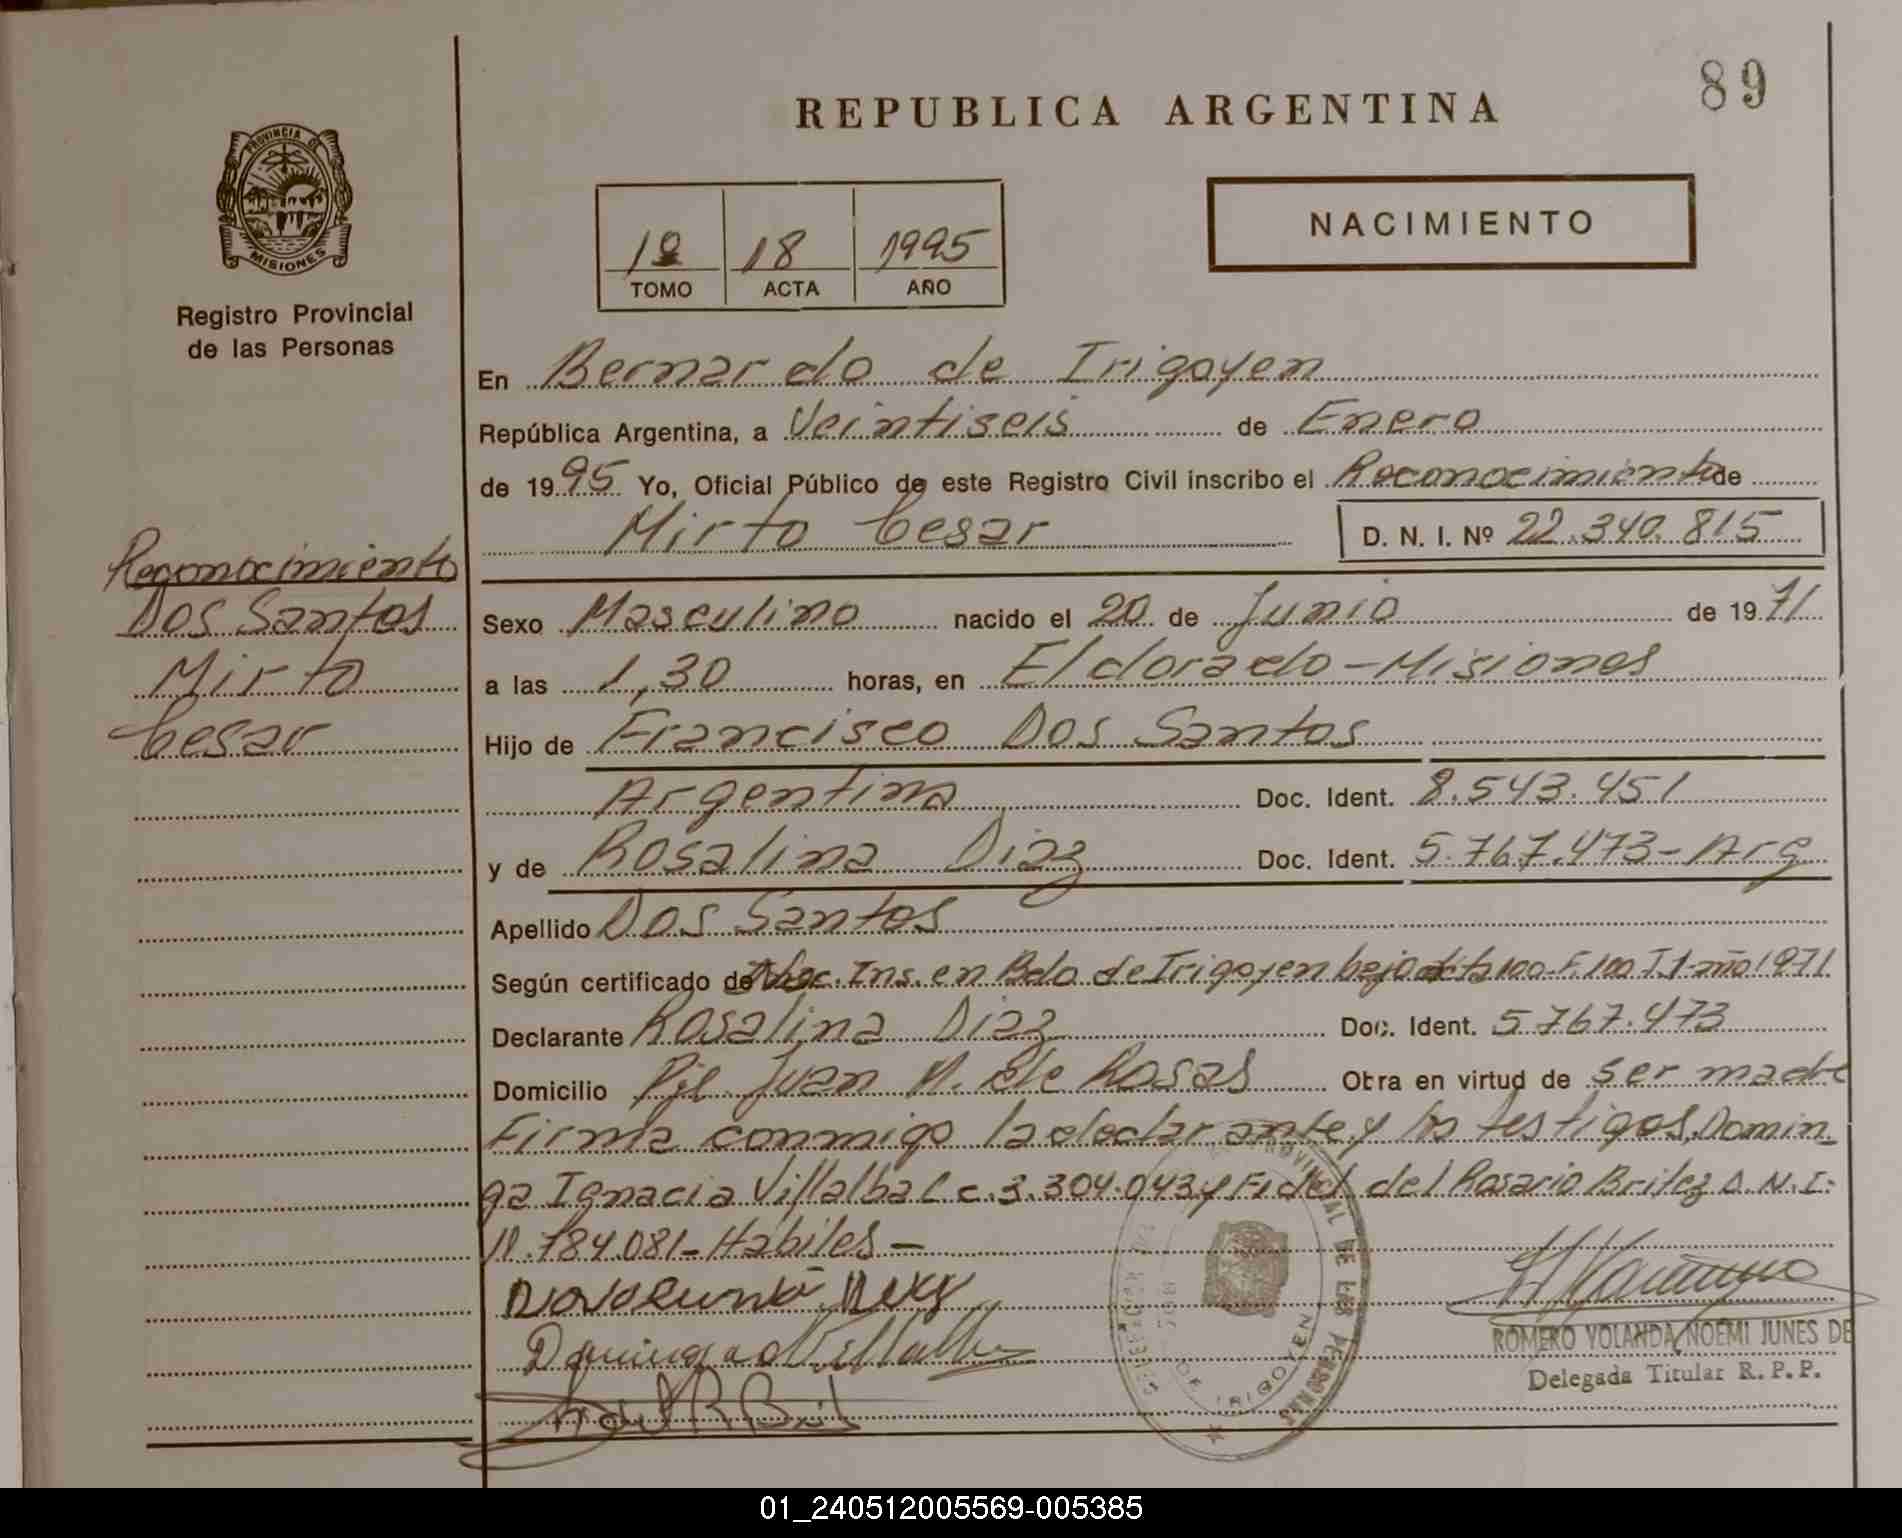 89
REPUBLICA ARGENTINA
PROVINCIA DE
MISIONES
Registro Provincial
de las Personas
NACIMIENTO
18 1995
TOMO ACTA AÑO
En Bernardo de Irigoyen
República Argentina, a Veintiseis de Enero
de 1995 Yo, Oficial Público de este Registro Civil inscribo el Reconocimiento de
Mirto Cesar D. N. I. Nº 22.340.815
Reconocimiento
Dos Santos
Mirto
Cesar
Sexo Masculino nacido el 20 de Junio de 1971
a las 1,30 horas, en Eldorado-Misiones
Hijo de Francisco Dos Santos
Argentina Doc. Ident. 8.543.451
y de Rosalina Diaz Doc. Ident. 5.767.473-Arg
Apellido Dos Santos
Según certificado de Ins. en Bdo de Irigoyen bajo acta 100-F.100 T.1-año 1971
Declarante Rosalina Diaz Doc. Ident. 5.767.473
Domicilio Pje Juan M. de Rosas Otra en virtud de ser madre
Firma conmigo la declarante y los testigos, Domin-
ga Ignacia Villalba L c. 3.304.043 y Fidel del Rosario Britez D. N. I.
11.784.081-Habiles-
PROVINCIAL DE LAS PERSONAS
DE IRIGOYEN
ROMERO YOLANDA NOEMI JUNES DE
Delegada Titular R. P. P.
01_240512005569-005385